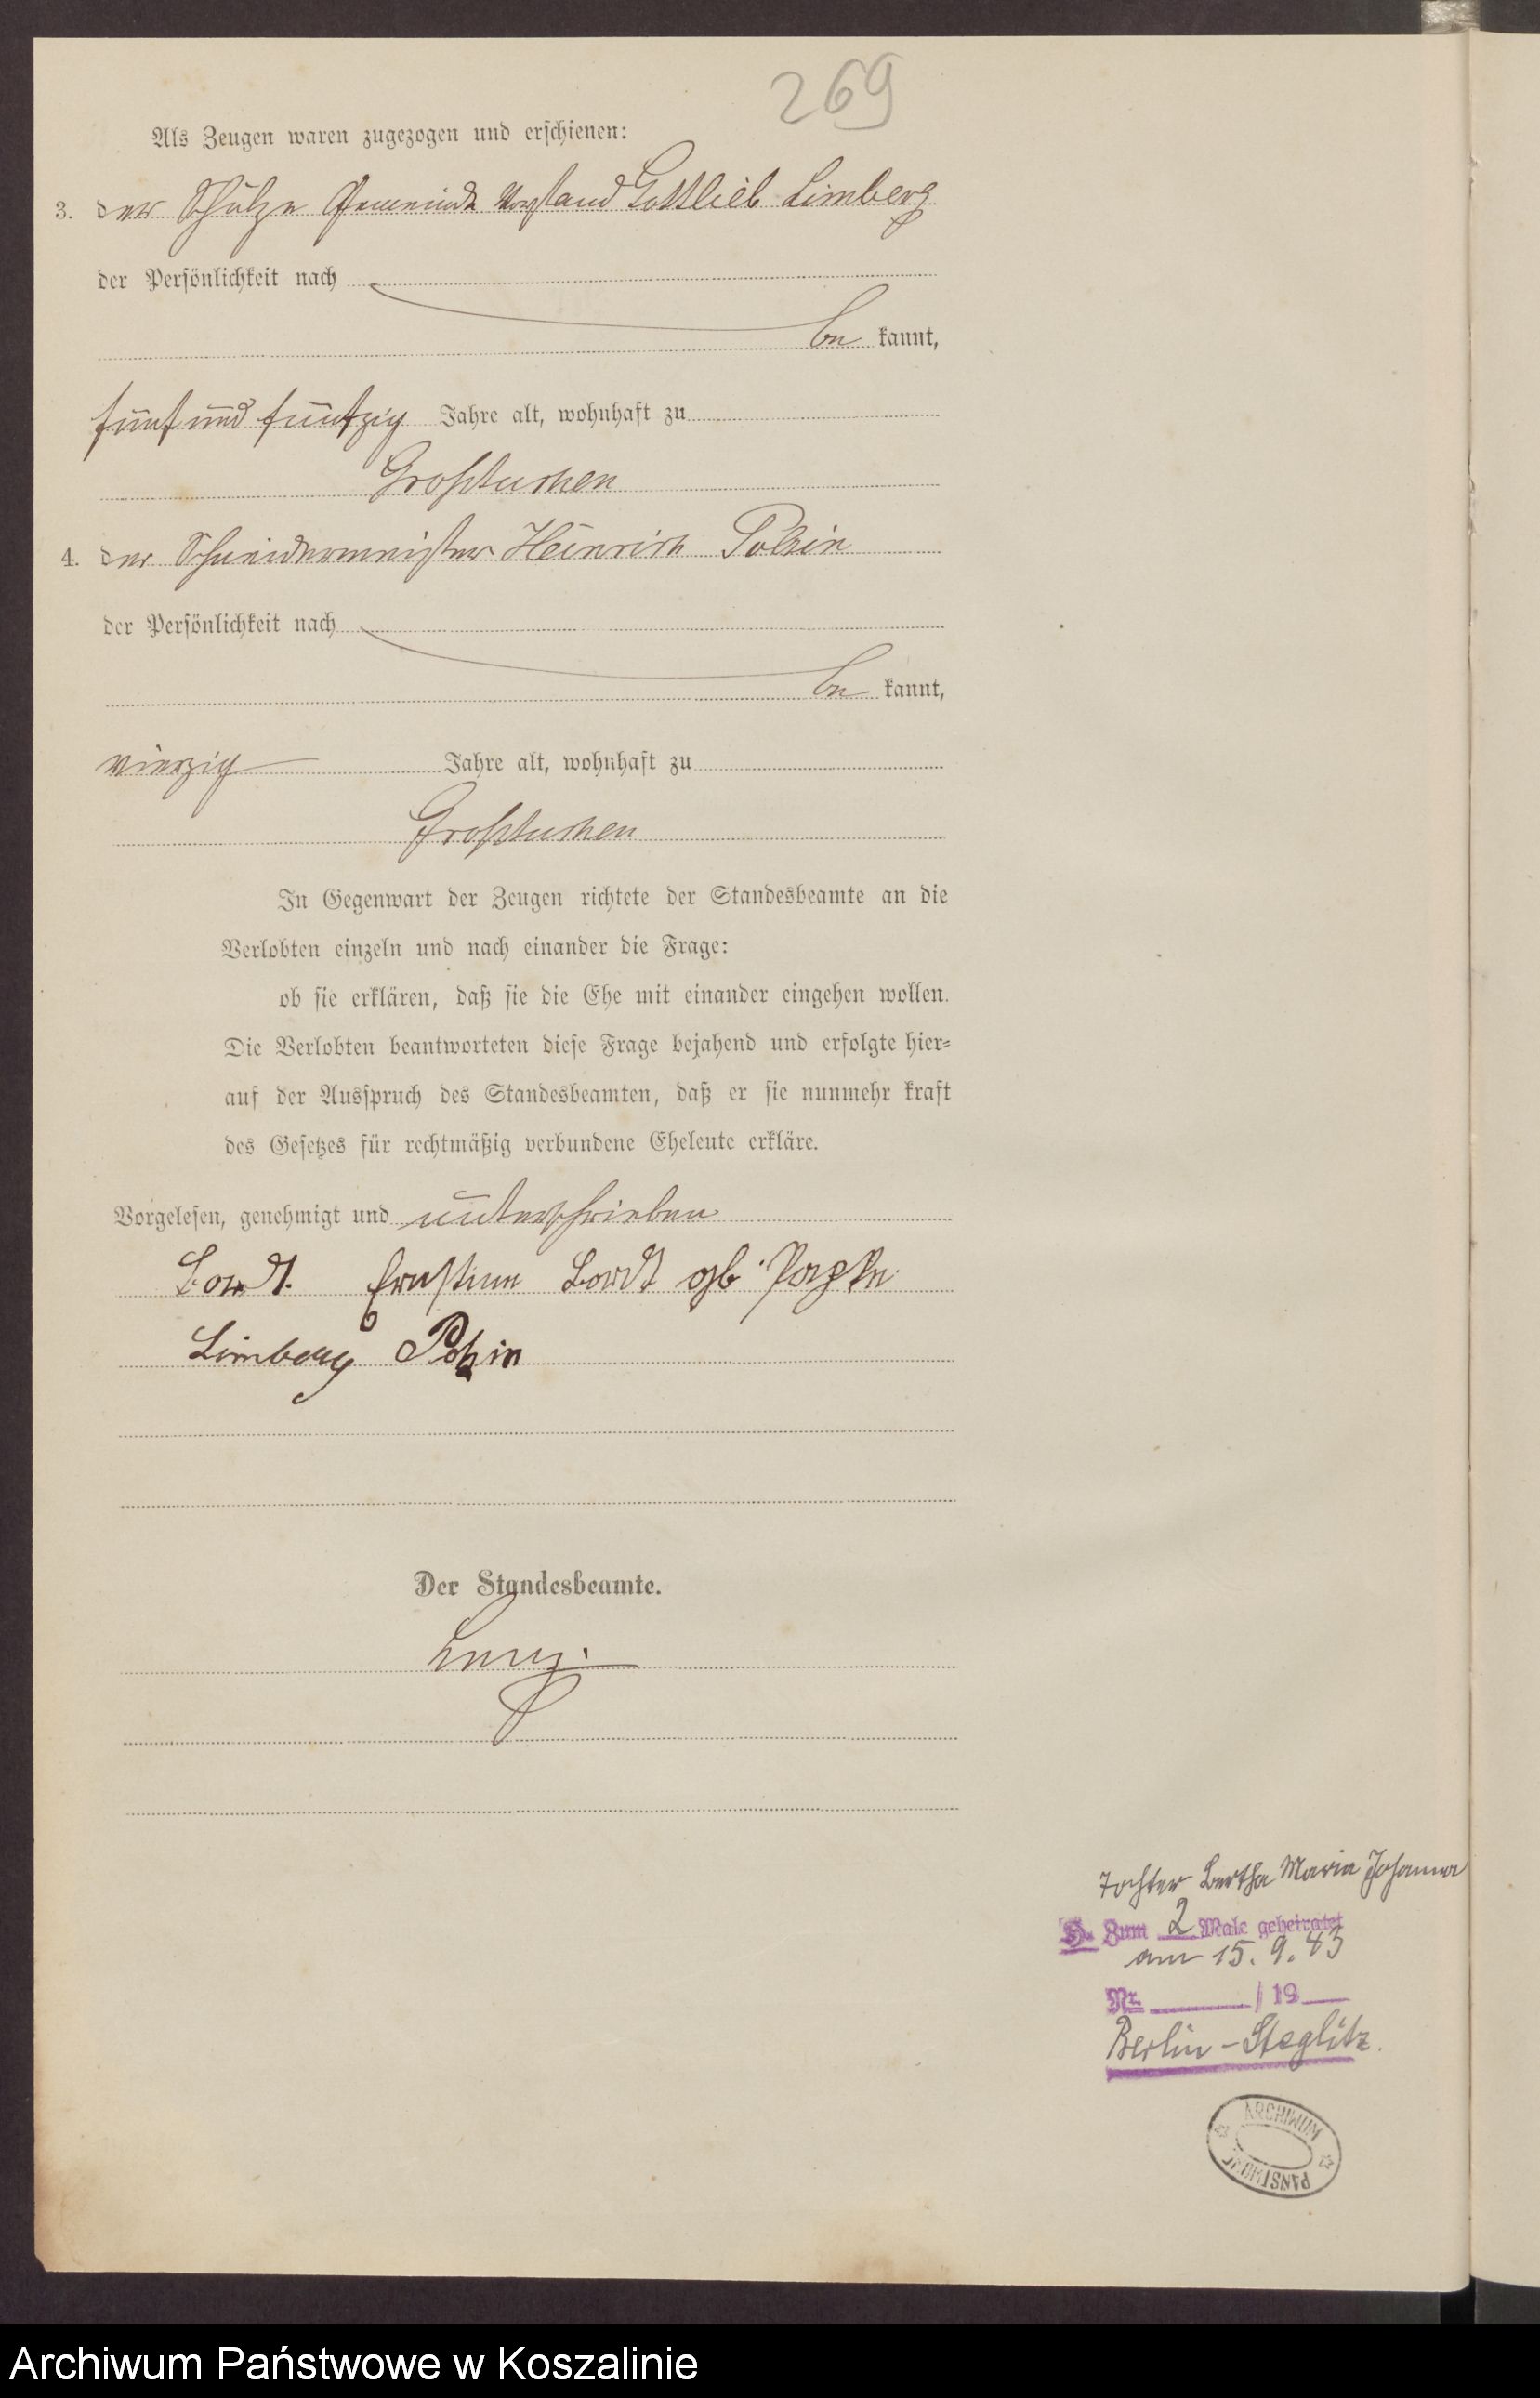 269
Als Zeugen waren zugezogen und erschienen:
3. der Schulze Gemeinde Vorstand Gottlieb Limberg
der Persönlichkeit nach
be kannt,
fünf und fünfzig Jahre alt, wohnhaft zu
Großtuchen
4. der Schneidermeister Heinrich Polzin
der Persönlichkeit nach
be kannt,
vierzig Jahre alt, wohnhaft zu
Großtuchen
In Gegenwart der Zeugen richtete der Standesbeamte an die
Verlobten einzeln und nach einander die Frage:
ob sie erklären, daß sie die Ehe mit einander eingehen wollen.
Die Verlobten beantworteten diese Frage bejahend und erfolgte hier=
auf der Ausspruch des Standesbeamten, daß er sie nunmehr kraft
des Gesetzes für rechtmäßig verbundene Eheleute erkläre.
Vorgelesen, genehmigt und unterschrieben
Ernstine gb
Limberg Polzin
Der Standesbeamte.
Tochter Bertha Maria Johanna
H. Zum 2 Male geheiratet
am 15. 9. 43
Nr. / 19
Berlin-Steglitz.
ARCHIWUM
PAŃSTWOWE
Archiwum Państwowe w Koszalinie